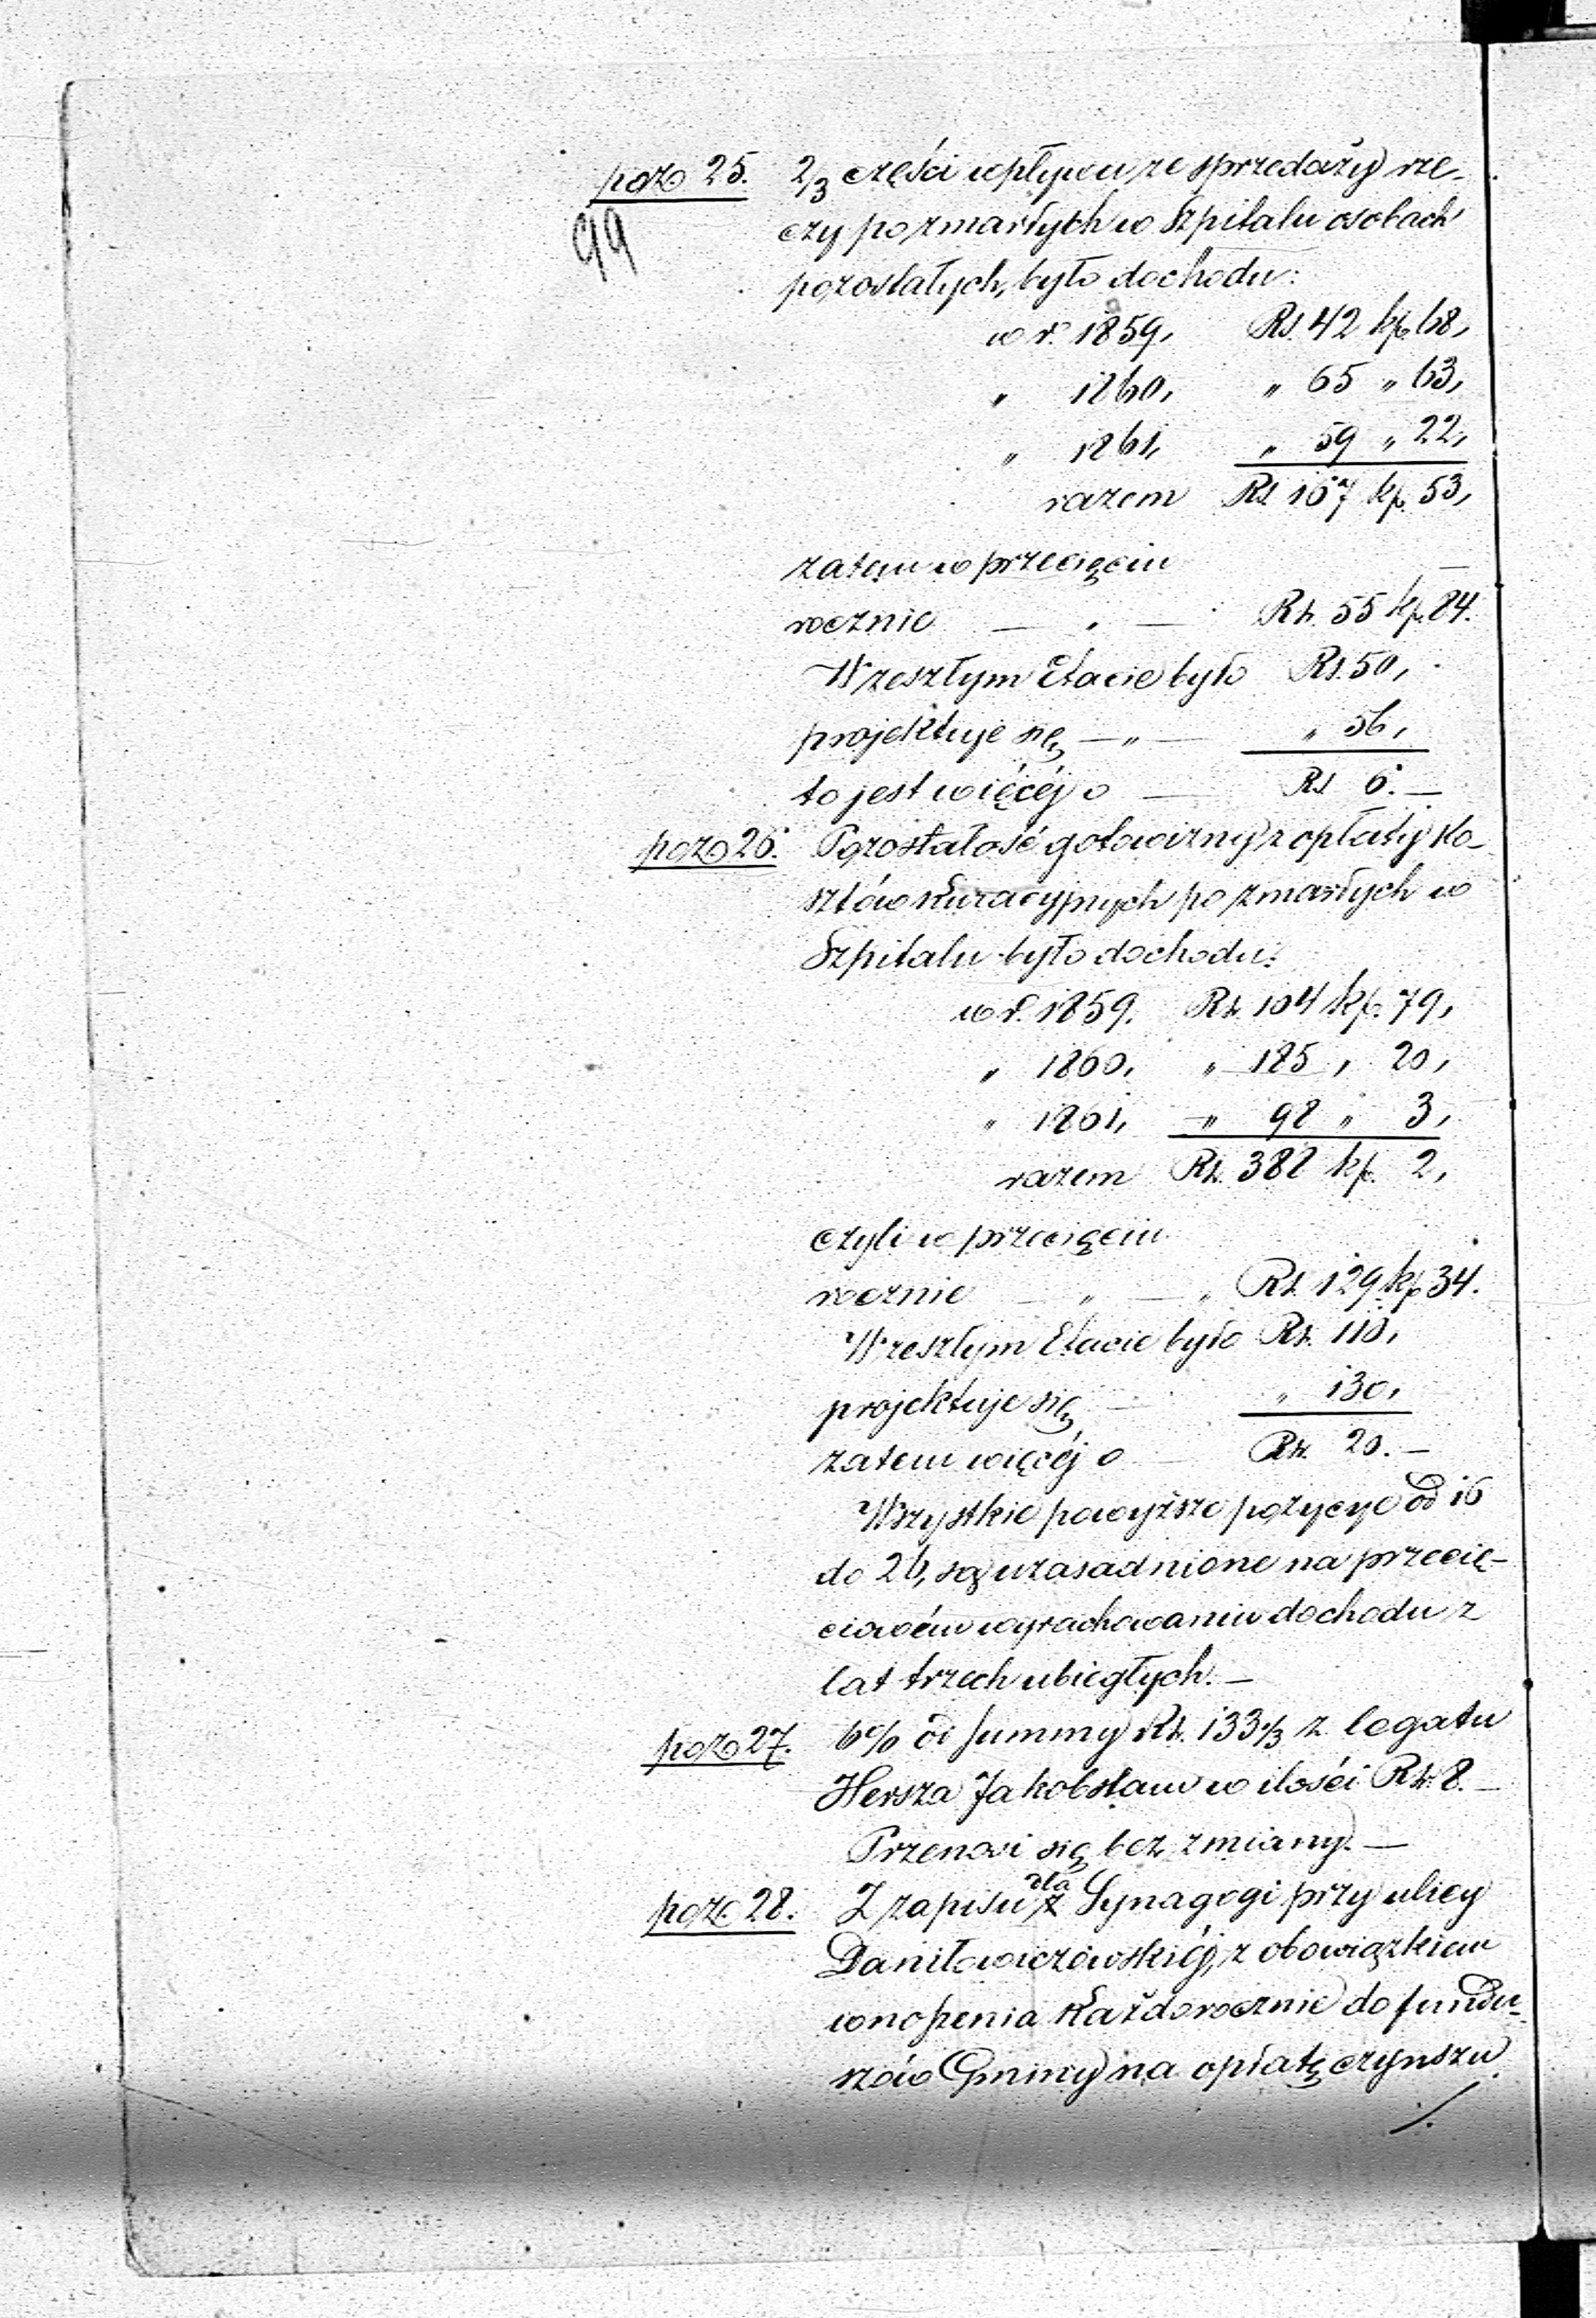 poz 25. 2/3 części wpływu ze sprzedaży rze-
99
czy po zmarłych w Szpitalu osobach
pozostałych, było dochodu:
w r. 1859, Rs. 42 kp. 68,
" 1860, " 65 " 63,
" 1861, " 59 " 22,
razem Rs 167 kp. 53,
zatem w przecięciu
rocznie — " — Rs. 55 kp. 84.
W zeszłym Etacie było Rs. 50,
projektuje się — " — " 56,
to jest więcéj o — Rs 6. —
poz 26. Pozostałość gotowizny z opłaty ko-
sztów kuracyjnych po zmarłych w
Szpitalu było dochodu:
w r. 1859. Rs. 104 kp. 79,
" 1860, " 185 " 20,
" 1861, " 98 " 3,
razem Rs. 388 kp. 2,
czyli w przecięciu
rocznie — " — " Rs. 129 kp 34.
W zeszłym Etacie było Rs. 110,
projektuje się — " 130,
zatem więcéj o — Rs. 20. —
Wszystkie powyższe pozycye od 16
do 26, są uzasadnione na przecię-
ciowém wyrachowaniu dochodu z
lat trzech ubiegłych. —
poz 27. 6% od summy Rs. 133 1/3 z legatu
Hersza Jakobsława w ilości Rs. 8. —
Przenosi się bez zmiany. —
dla
poz. 28. Z zapisu z Synagogi przy ulicy
Daniłowiczowskiéj, z obowiązkiem
wnoszenia każdorocznie do fundu-
szów Gminy na opłatę czynszu
./.